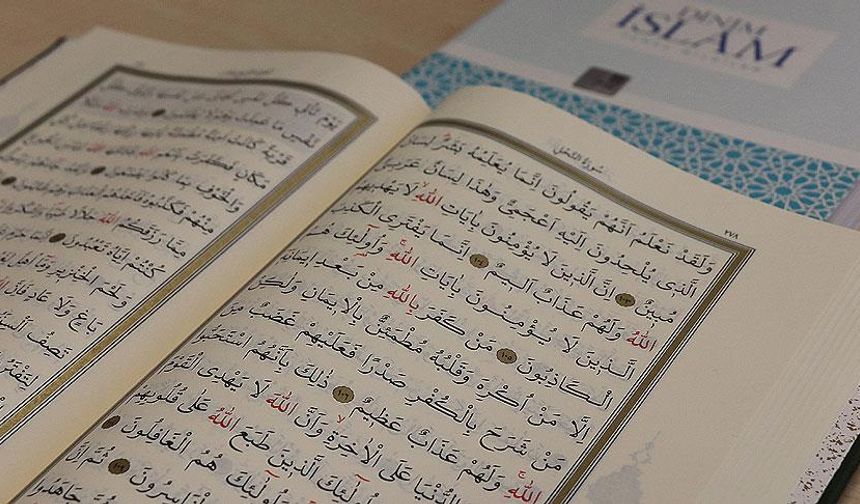 DİNİM
İSLAM
سُورَةُ النَّحْلِ
٢٧٨
وَلَقَدْ نَعْلَمُ اَنَّهُمْ يَقُولُونَ اِنَّمَا يُعَلِّمُهُ بَشَرٌ لِسَانُ
الَّذِي يُلْحِدُونَ اِلَيْهِ اَعْجَمِيٌّ وَهٰذَا لِسَانٌ عَرَبِيٌّ
مُبِينٌ ١٠٣ اِنَّ الَّذِينَ لَا يُؤْمِنُونَ بِاٰيَاتِ اللّٰهِ لَا يَهْدِيهِمُ
اللّٰهُ وَلَهُمْ عَذَابٌ اَلِيمٌ ١٠٤ اِنَّمَا يَفْتَرِى الْكَذِبَ
الَّذِينَ لَا يُؤْمِنُونَ بِاٰيَاتِ اللّٰهِ وَاُولٰٓئِكَ هُمُ
الْكَاذِبُونَ ١٠٥ مَنْ كَفَرَ بِاللّٰهِ مِنْ بَعْدِ اِيمَانِهِ
اِلَّا مَنْ اُكْرِهَ وَقَلْبُهُ مُطْمَئِنٌّ بِالْاِيمَانِ وَلٰكِنْ
مَنْ شَرَحَ بِالْكُفْرِ صَدْرًا فَعَلَيْهِمْ غَضَبٌ مِنَ
اللّٰهِ وَلَهُمْ عَذَابٌ عَظِيمٌ ١٠٦ ذٰلِكَ بِاَنَّهُمُ اسْتَحَبُّوا
الدُّنْيَا عَلَى الْاٰخِرَةِ وَاَنَّ اللّٰهَ لَا يَهْدِى الْقَوْمَ
اُولٰٓئِكَ الَّذِينَ طَبَعَ اللّٰهُ عَلٰى قُلُوبِهِمْ
اُولٰٓئِكَ هُمُ الْغَافِلُونَ
ثُمَّ اِنَّ
جَاهَدُوا
يَوْمَ تَأْتِى كُلُّ نَفْسٍ
نَفْسٍ مَا عَمِلَتْ
قَرْيَةً كَانَتْ اٰمِنَةً مُطْمَئِنَّةً
مَكَانٍ فَكَفَرَتْ بِاَنْعُمِ اللّٰهِ
وَالْخَوْفِ بِمَا كَانُوا يَصْنَعُونَ
مِنْهُمْ فَكَذَّبُوهُ فَاَخَذَهُمُ
مِمَّا رَزَقَكُمُ اللّٰهُ حَلَالًا طَيِّبًا
كُنْتُمْ اِيَّاهُ تَعْبُدُونَ
وَلَحْمَ الْخِنْزِيرِ وَمَا اُهِلَّ
بَاغٍ وَلَا عَادٍ فَاِنَّ اللّٰهَ
تَصِفُ اَلْسِنَتُكُمُ
لِتَفْتَرُوا